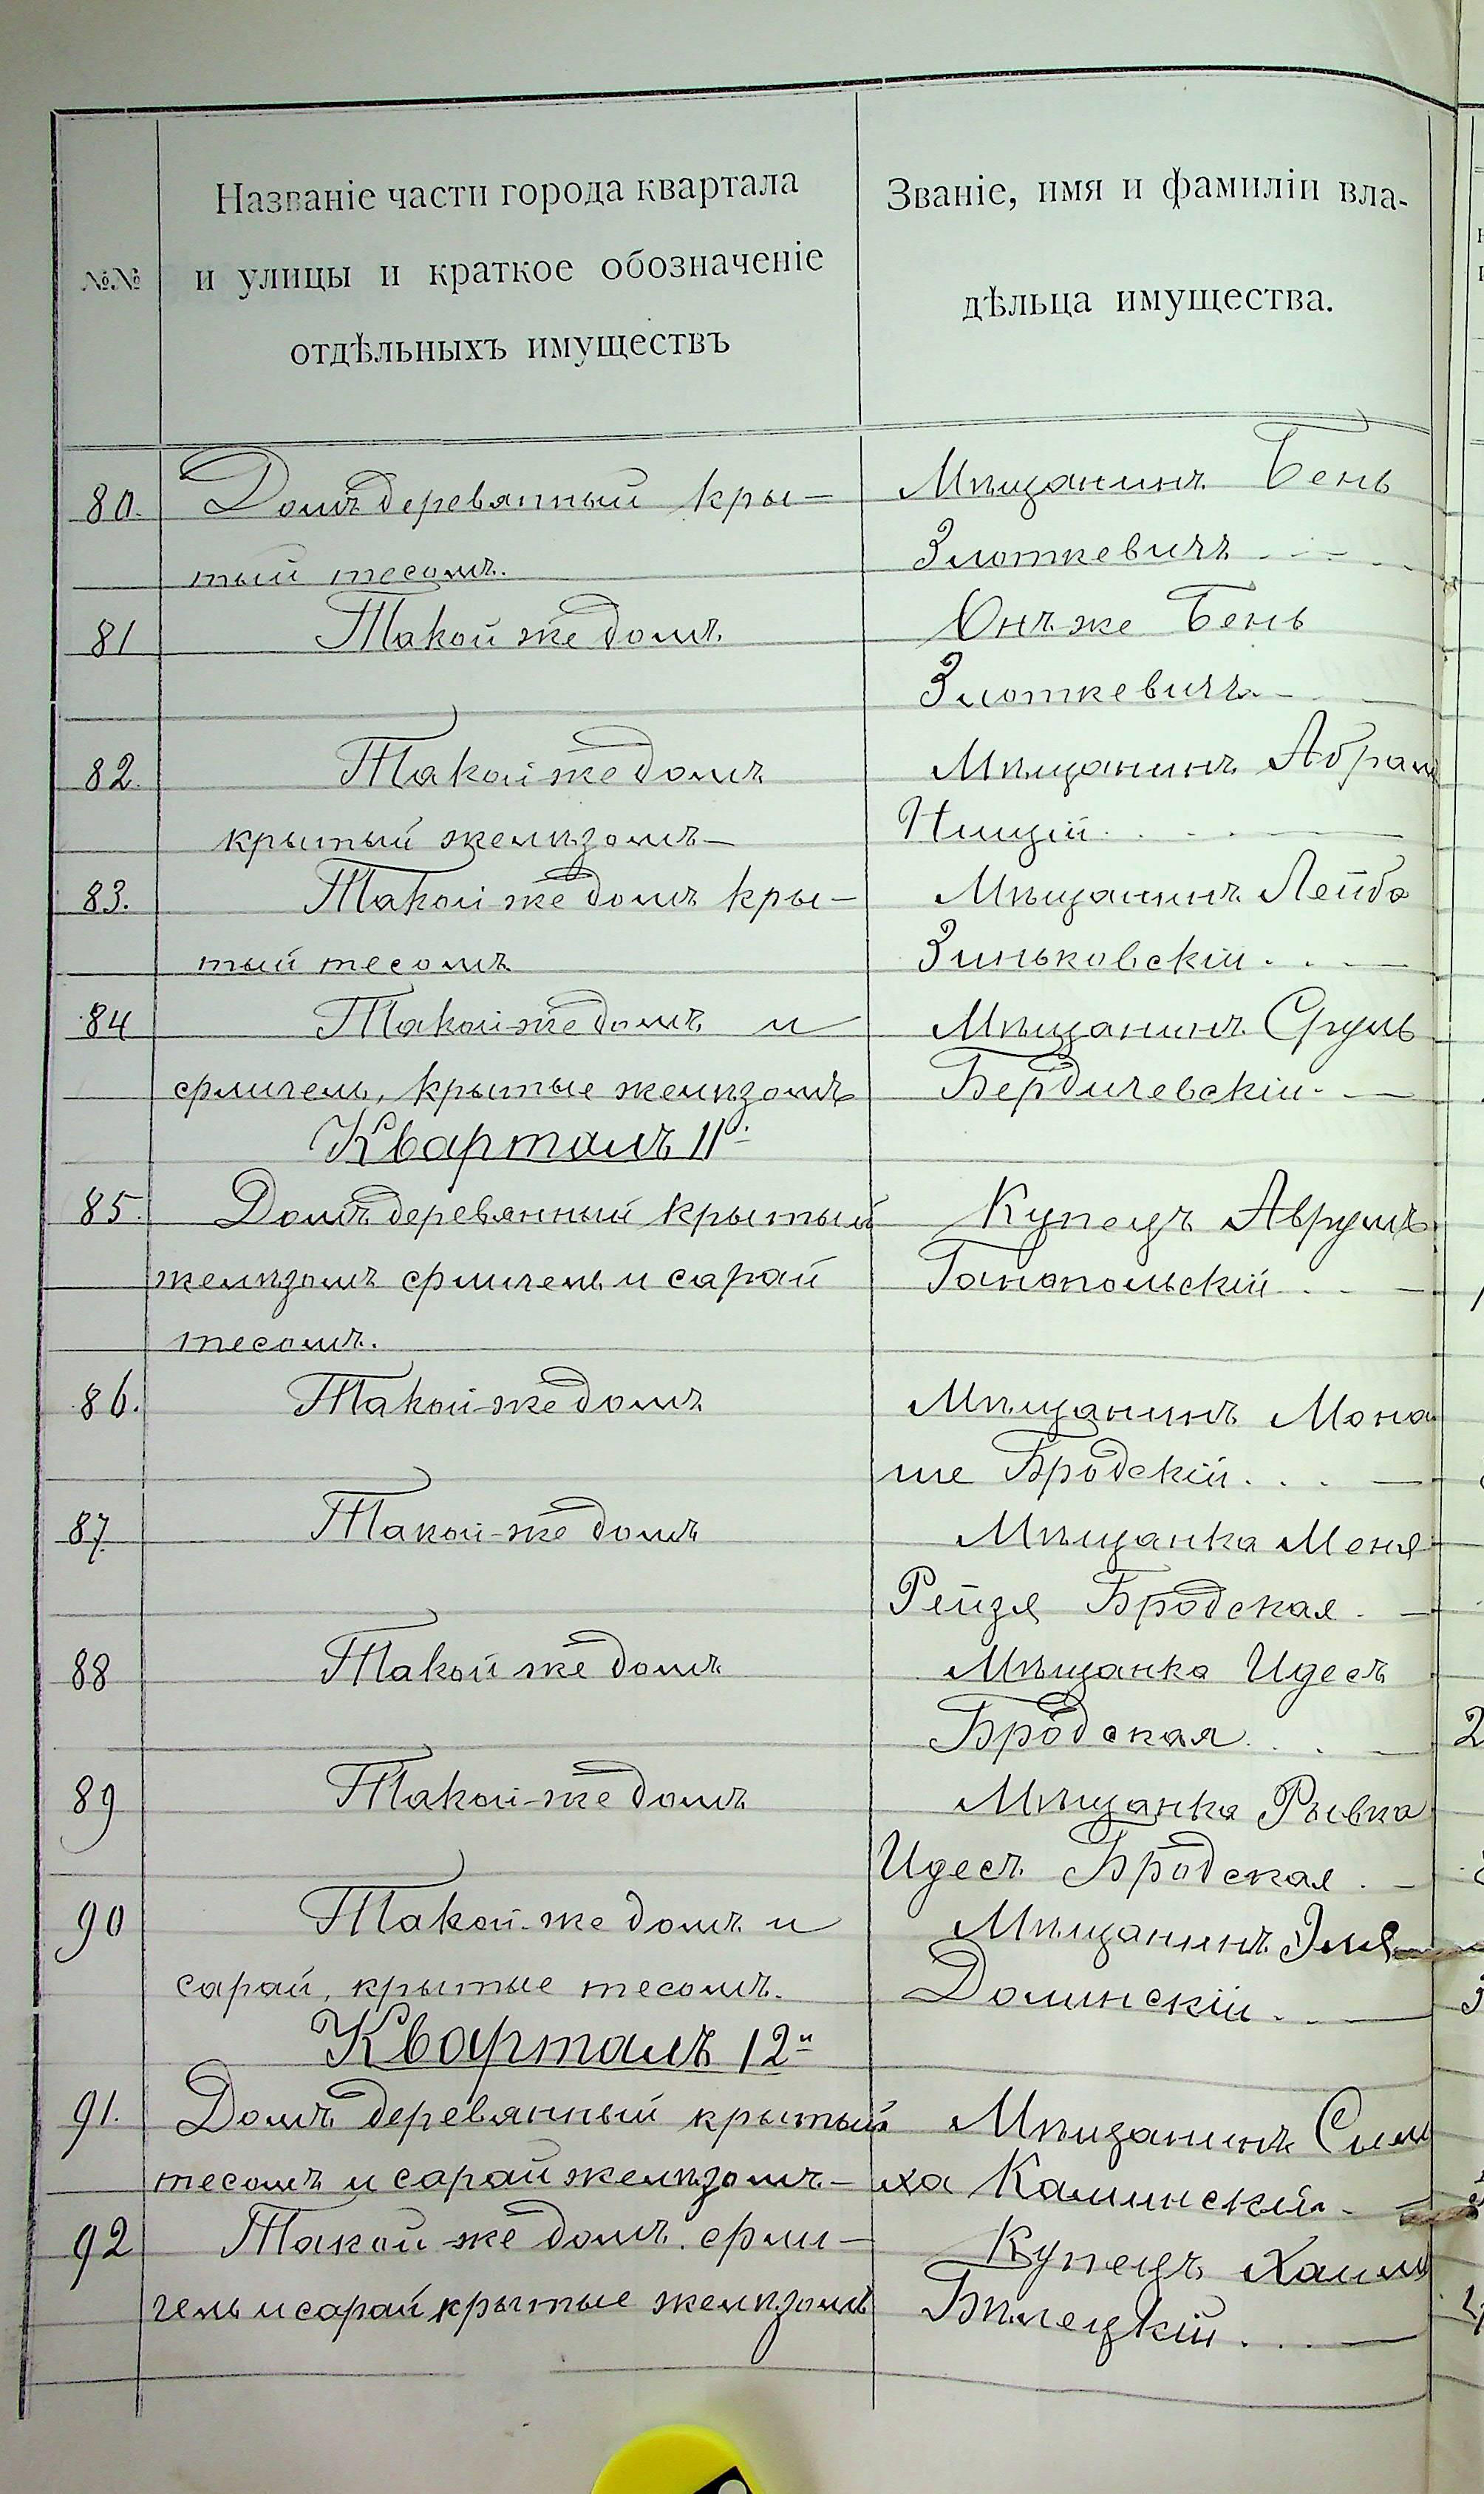 №№
Названіе части города квартала
и улицы и краткое обозначеніе
отдѣльныхъ имуществъ
Званіе, имя и фамиліи вла-
дѣльца имущества.
80. Домъ деревянный кры- Мѣщанинъ Бень
тый тесомъ. Злоткевичъ
81 Такой же домъ Онъ-же Бень
Злоткевичъ
82. Такой-же домъ Мѣщанинъ Абрам
крытый желѣзомъ Ницій
83. Такой-же домъ кры- Мѣщанинъ Лейба
тый тесомъ Зиньковскій
84 Такой-же домъ и Мѣщанинъ Сруль
флигель, крытые желѣзомъ Бердичевскій
Кварталъ 11й
85. Домъ деревянный крытый Купецъ Аврумъ
желѣзомъ флигель и сарай Ганапольскій
тесомъ.
86. Такой-же домъ Мѣщанинъ Мона
ше Бродскій
87 Такой-же домъ Мѣщанка Меня
Рейзя Бродская
88 Такой же домъ Мѣщанка Идесъ
Бродская
89 Такой-же домъ Мѣщанка Рывка
Идесъ Бродская
90 Такой-же домъ и Мѣщанинъ Эля
сарай, крытые тесомъ. Долинскій
Кварталъ 12й
91. Домъ деревянный крытый Мѣщанинъ Сим
тесомъ и сарай желѣзомъ ха Калинскій
92 Такой-же домъ. фли- Купецъ Хаим
гель и сарай крытые желѣзомъ Бѣлецкій